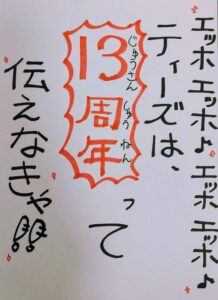 エッホ エッホ♪ エッホ エッホ♪
ティーズは、
じゅうさん しゅう ねん
13周年って
伝えなきゃ!!